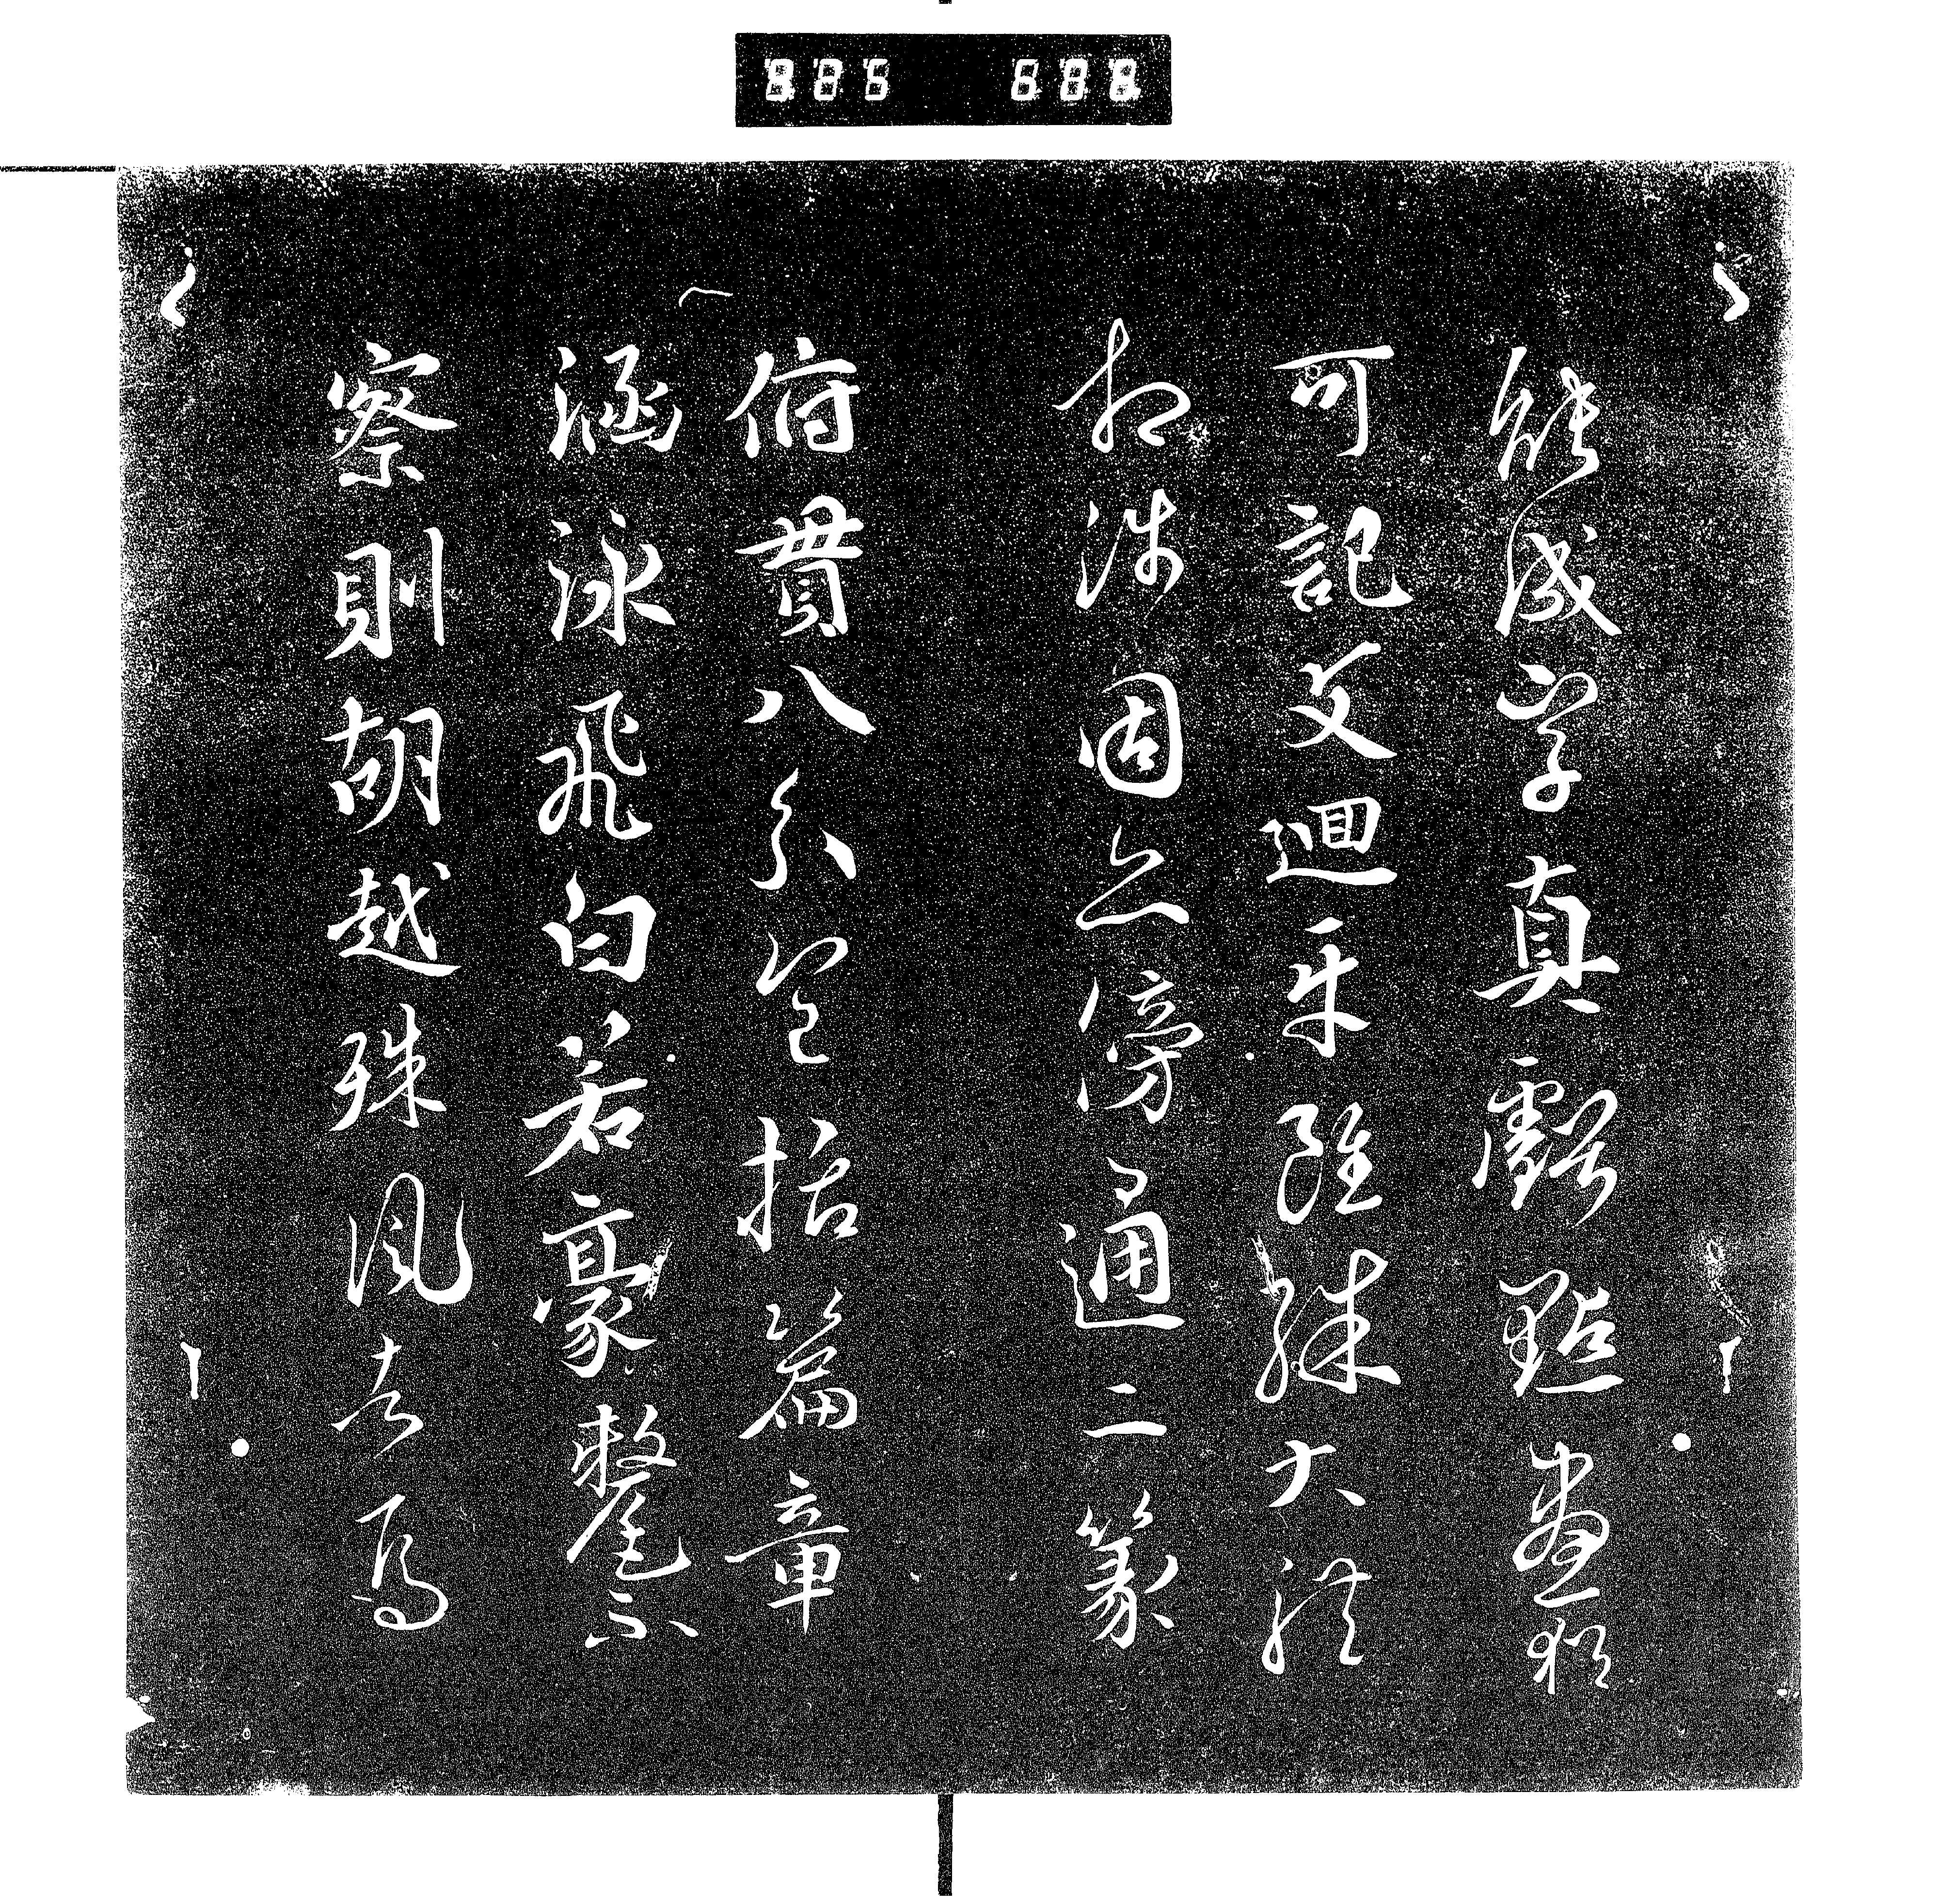 能成字真虧點畫猶
可記文迴互雖殊大體
相涉固亦傍通二篆
俯貫八分包括篇章
涵泳飛白若豪釐不
察則胡越殊風者焉